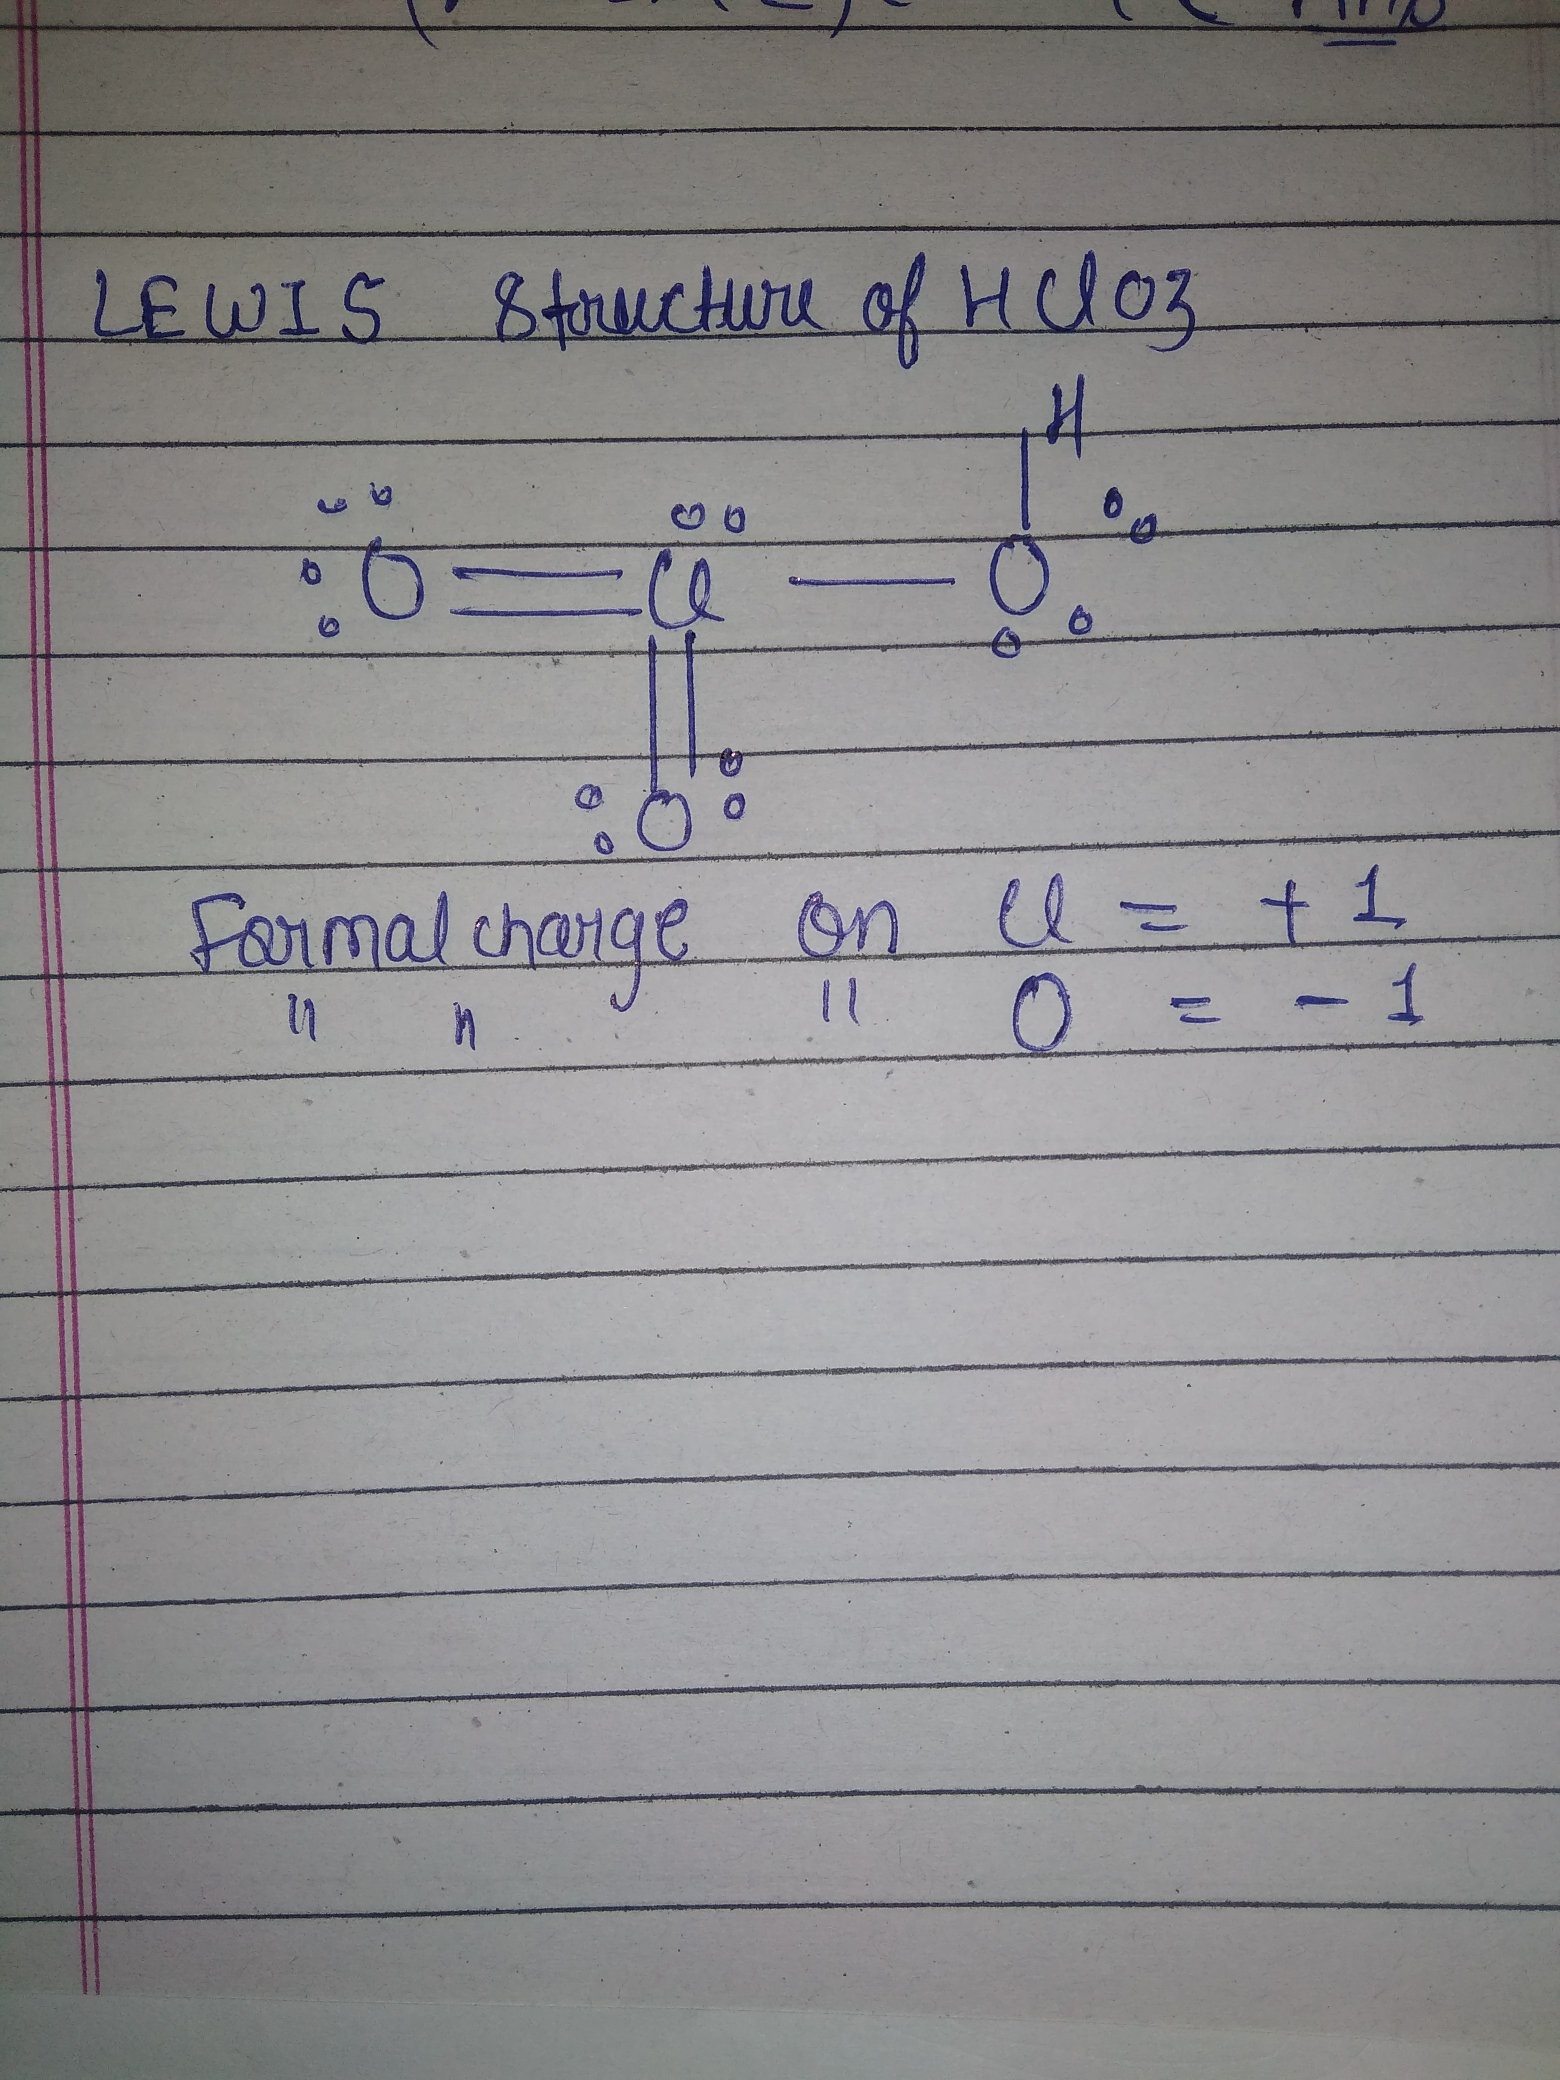 LEWIS Structure of HClO3
H
O = Cl — O
O
Formal charge on Cl = + 1
" " " O = - 1